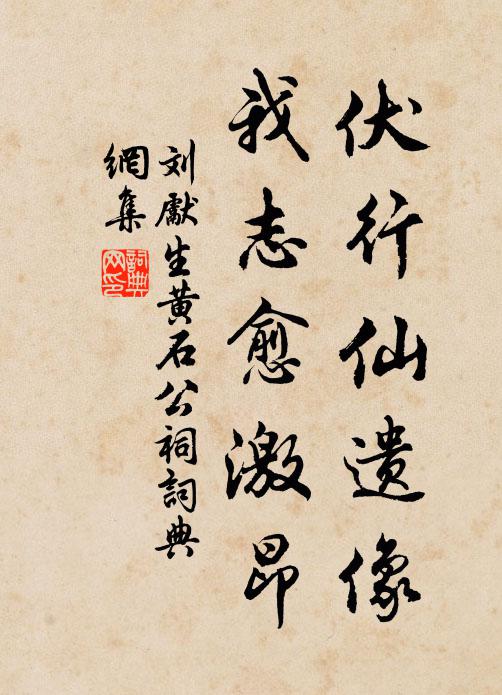 伏行仙遗像
我志愈激昂
刘獻生黄石公祠詞典
網集
詞典
网印